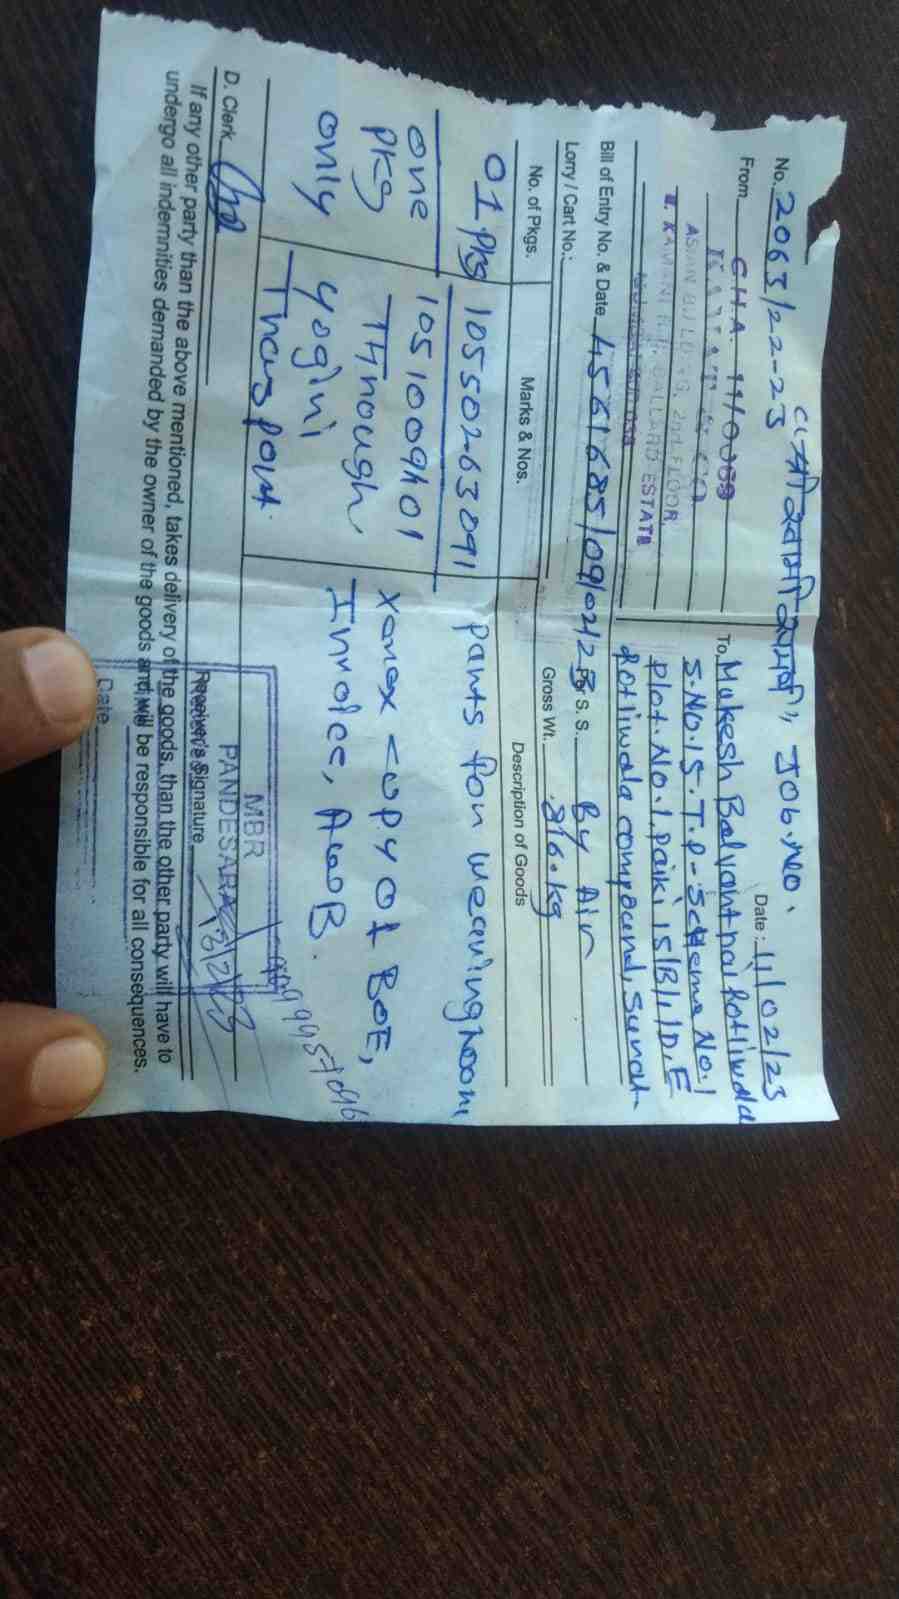 ॥ श्री स्वामी समर्थ ॥, Job.No.
No. 2063/22-23
Date : 11/02/23
From C.H.A. 11/0089
ASIAN BUILDING, 2nd FLOOR
R. KAMANI MARG, BALLARD ESTATE
To, Mukesh Balvantrai Rotliwala
S.NO.15.T.P-Schema No.1
Plot.No.1.Paiki 15/B/1/D.E
Rotliwala compound, Surat
Bill of Entry No. & Date 4561685/09/02/23 Per S. S. By Air
Lorry / Cart No.: Gross Wt. 816.kg
No. of Pkgs. Marks & Nos. Description of Goods
01 Pkg 10550263091 parts for weaving room
one 1051009401
pkg Through Xerox copy of BOE,
only Yogini Invoice, AWB.
Transport
MBR
PANDESARA
D. Clerk Receiver's Signature
If any other party than the above mentioned, takes delivery of the goods, than the other party will have to
undergo all indemnities demanded by the owner of the goods and will be responsible for all consequences.
Date